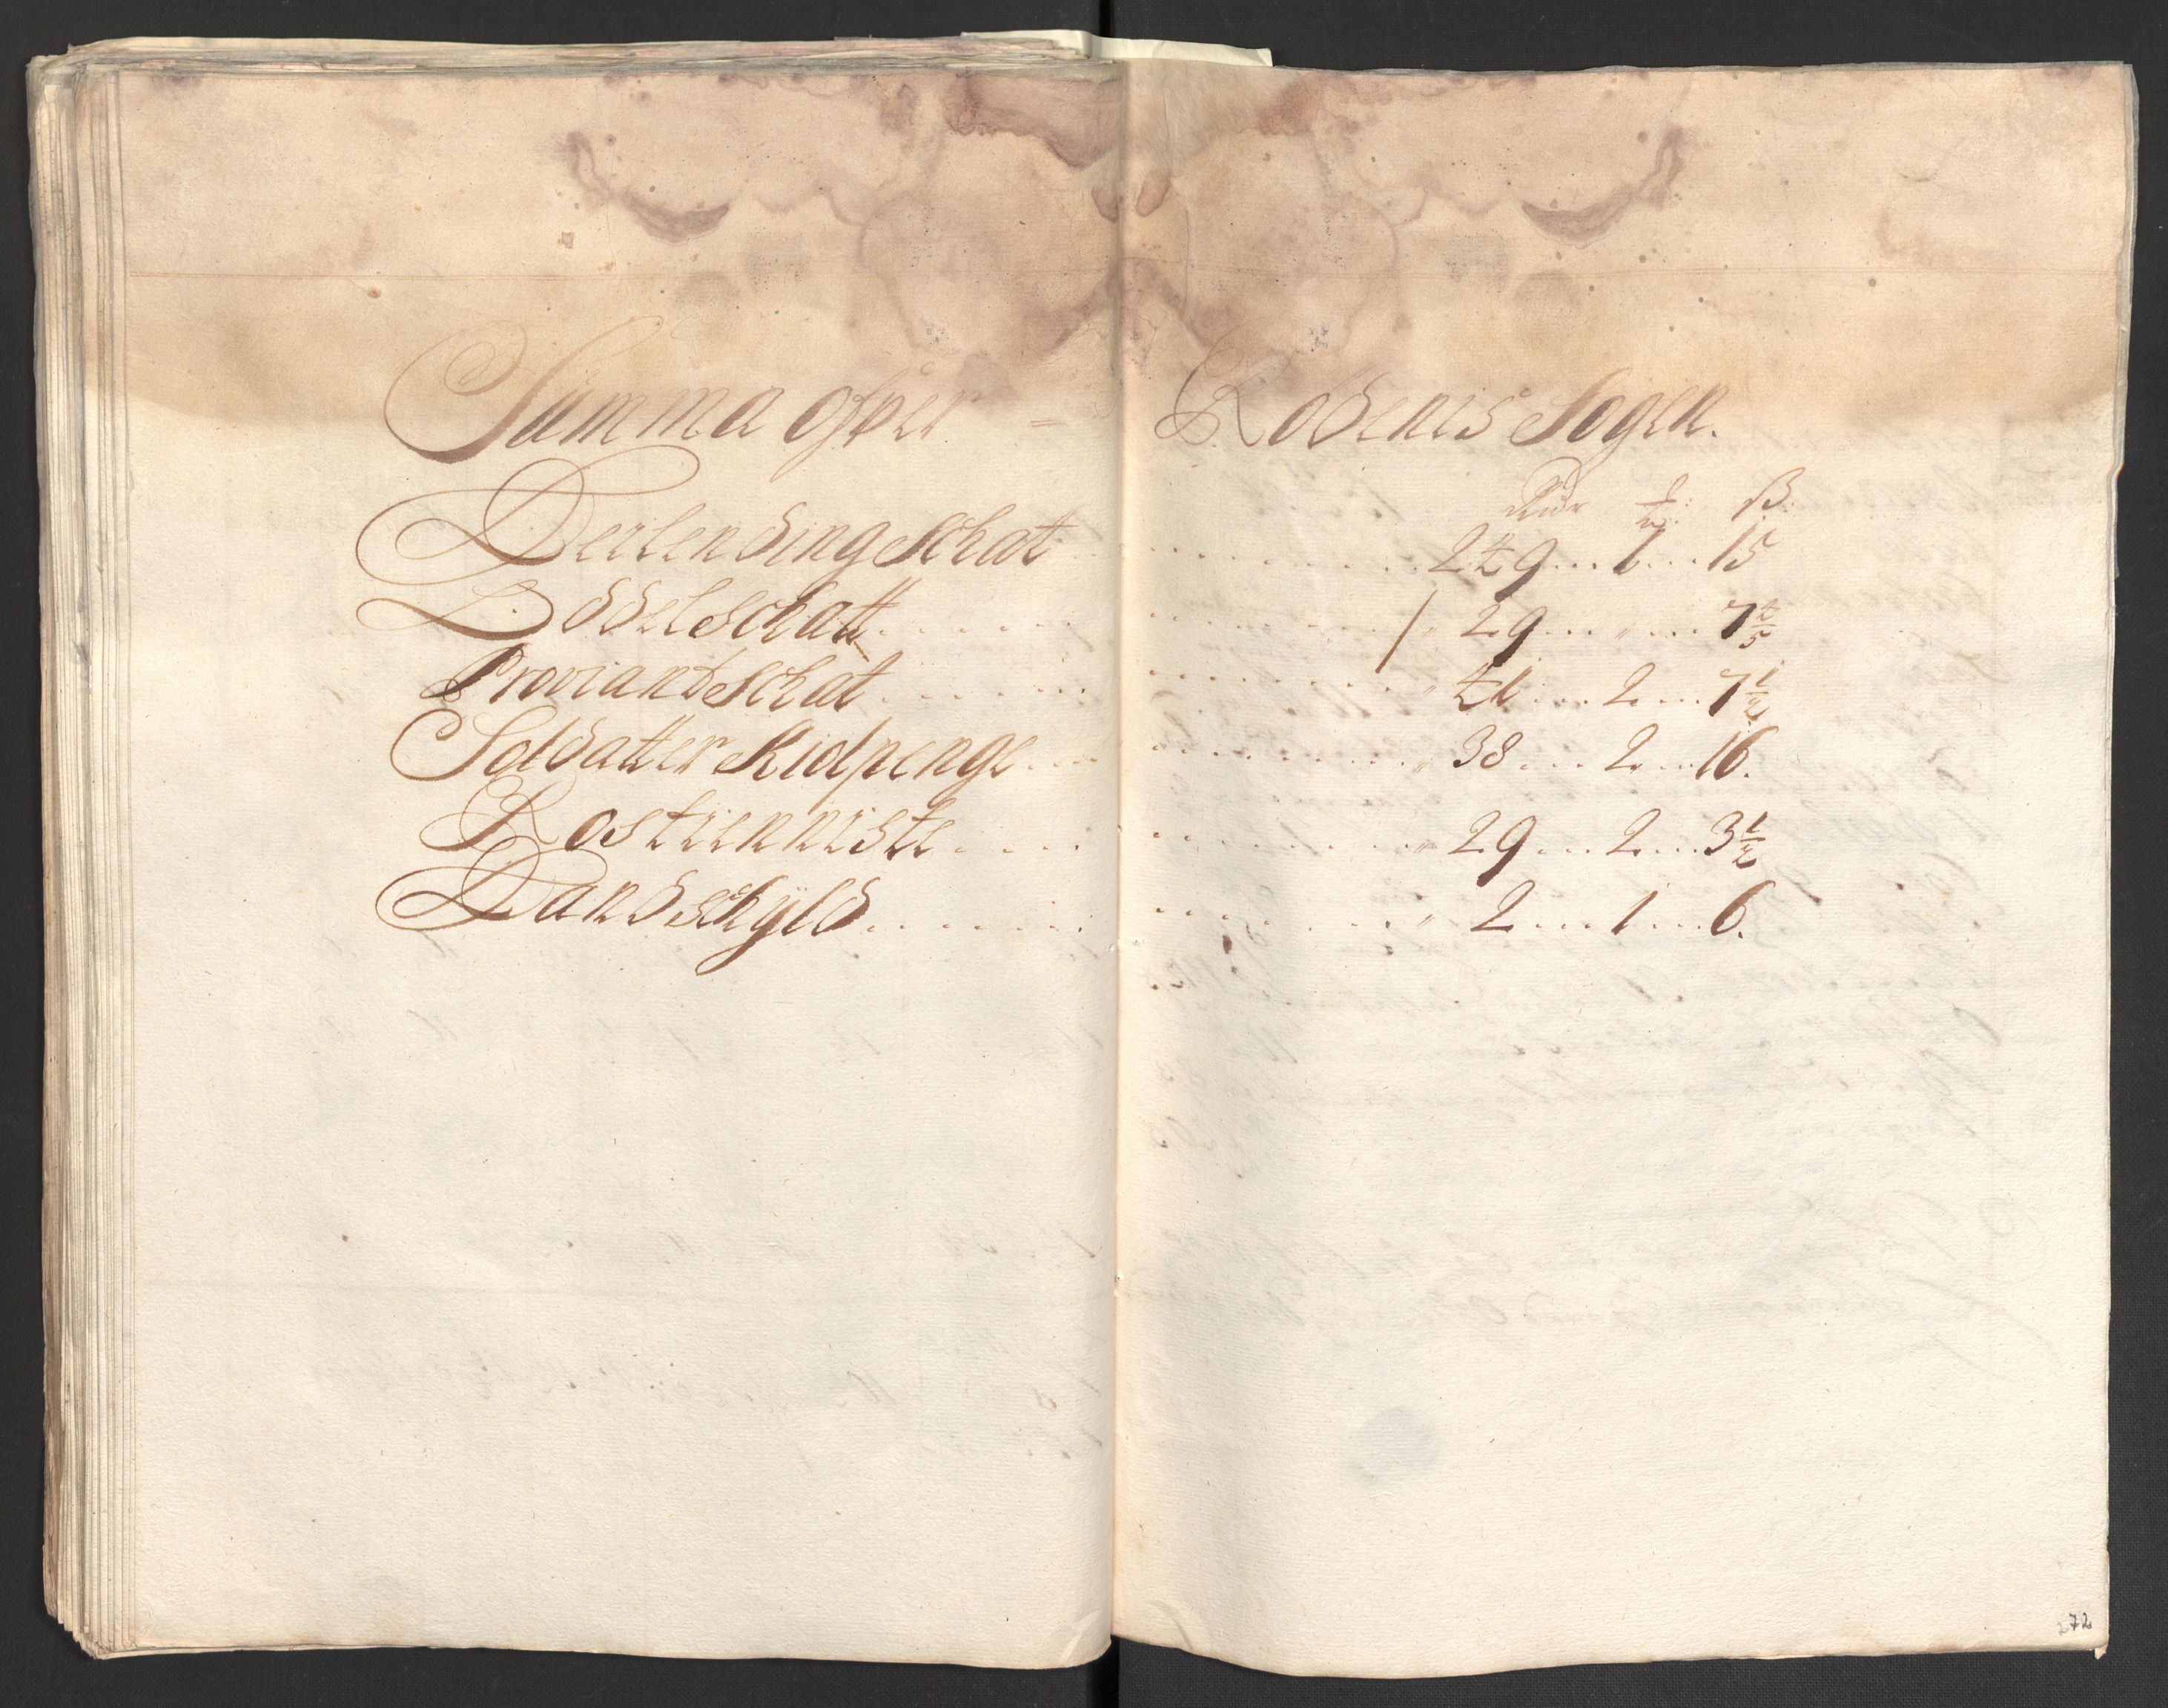 Summa ofver = Rodenis Sogen.
Rdr ort: ß:
Leilending Schat ........ 249 .. 1 .. 15
Oddel Schatt ........ 29 .. " .. 7 4/5
Proviant Schat ........ 41 .. 2 .. 7 1/2
Soldatter Skiolpenge ........ 38 .. 2 .. 16.
Rostienneste ........ 29 .. 2 .. 3 1/2
Landschyld ........ 2 .. 1 .. 6.
272